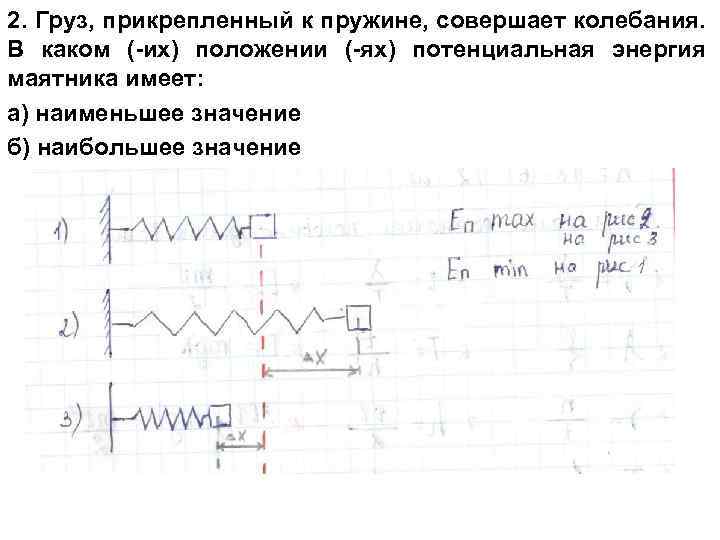 2. Груз, прикрепленный к пружине, совершает колебания.
В каком (-их) положении (-ях) потенциальная энергия
маятника имеет:
а) наименьшее значение
б) наибольшее значение
1)
Eп max на рис 2.
на рис 3
Eп min на рис 1.
2)
ΔX
3)
ΔX